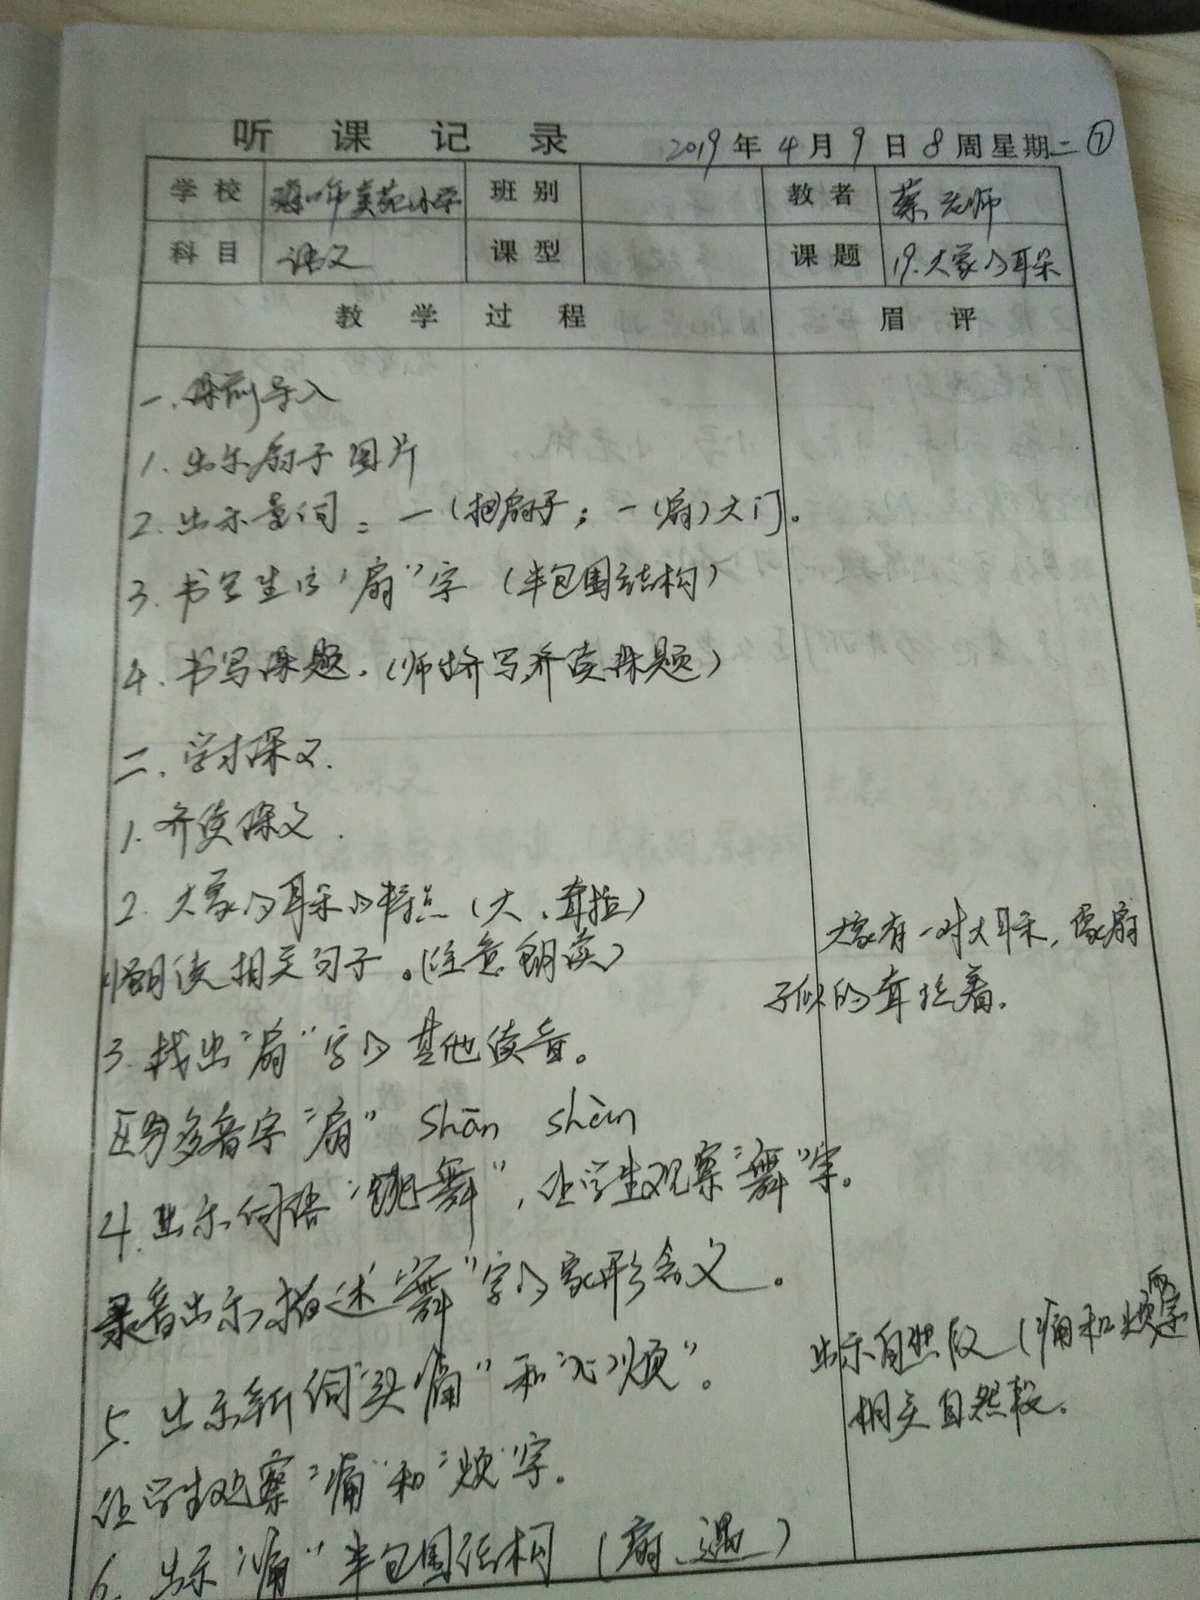 听课记录 2019年4月9日8周星期二 ⑦
学校 小学 班别 教者 蔡老师
科目 语文 课型 课题 19.大象的耳朵
教学过程 眉评
一.课前导入
1.出示扇子图片
2.出示量词：一(把)扇子；一(扇)大门。
3.书写生字“扇”字（半包围结构）
4.书写课题.（师生齐写齐读课题）
二.学习课文.
1.齐读课文.
2.大象的耳朵的特点（大、耷拉）
朗读相关句子。（注意朗读）
大象有一对大耳朵，像扇
子似的耷拉着.
3.找出“扇”字的其他读音。
区分多音字“扇” shān shàn
4.出示词语“跳舞”，让学生观察“舞”字。
录音出示描述“舞”字的象形含义。
5.出示新词“头痛”和“心烦”。
让学生观察“痛”和“烦”字。
出示自然段（痛和烦两字
相关自然段.
6.出示“痛”半包围结构（扇、遇）